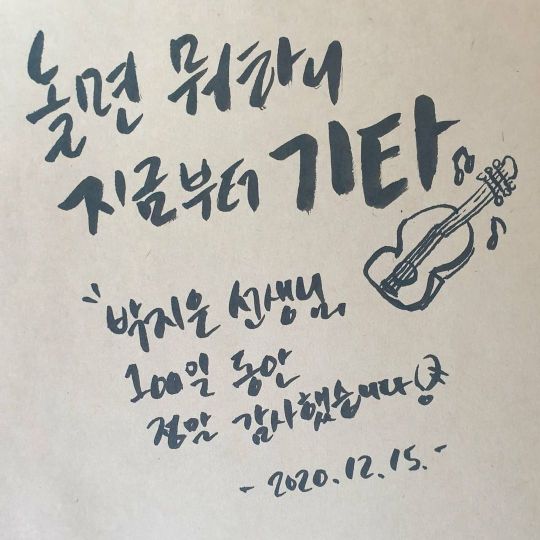 놀면 뭐하니
지금부터 기타
"박지운 선생님,
100일 동안
정말 감사했습니다!"
- 2020.12.15. -